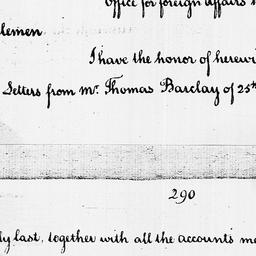 office for foreign affairs
lemen
I have the honor of herewi
Letters from Mr. Thomas Barclay of 25th
290
ly last, together with all the accounts me